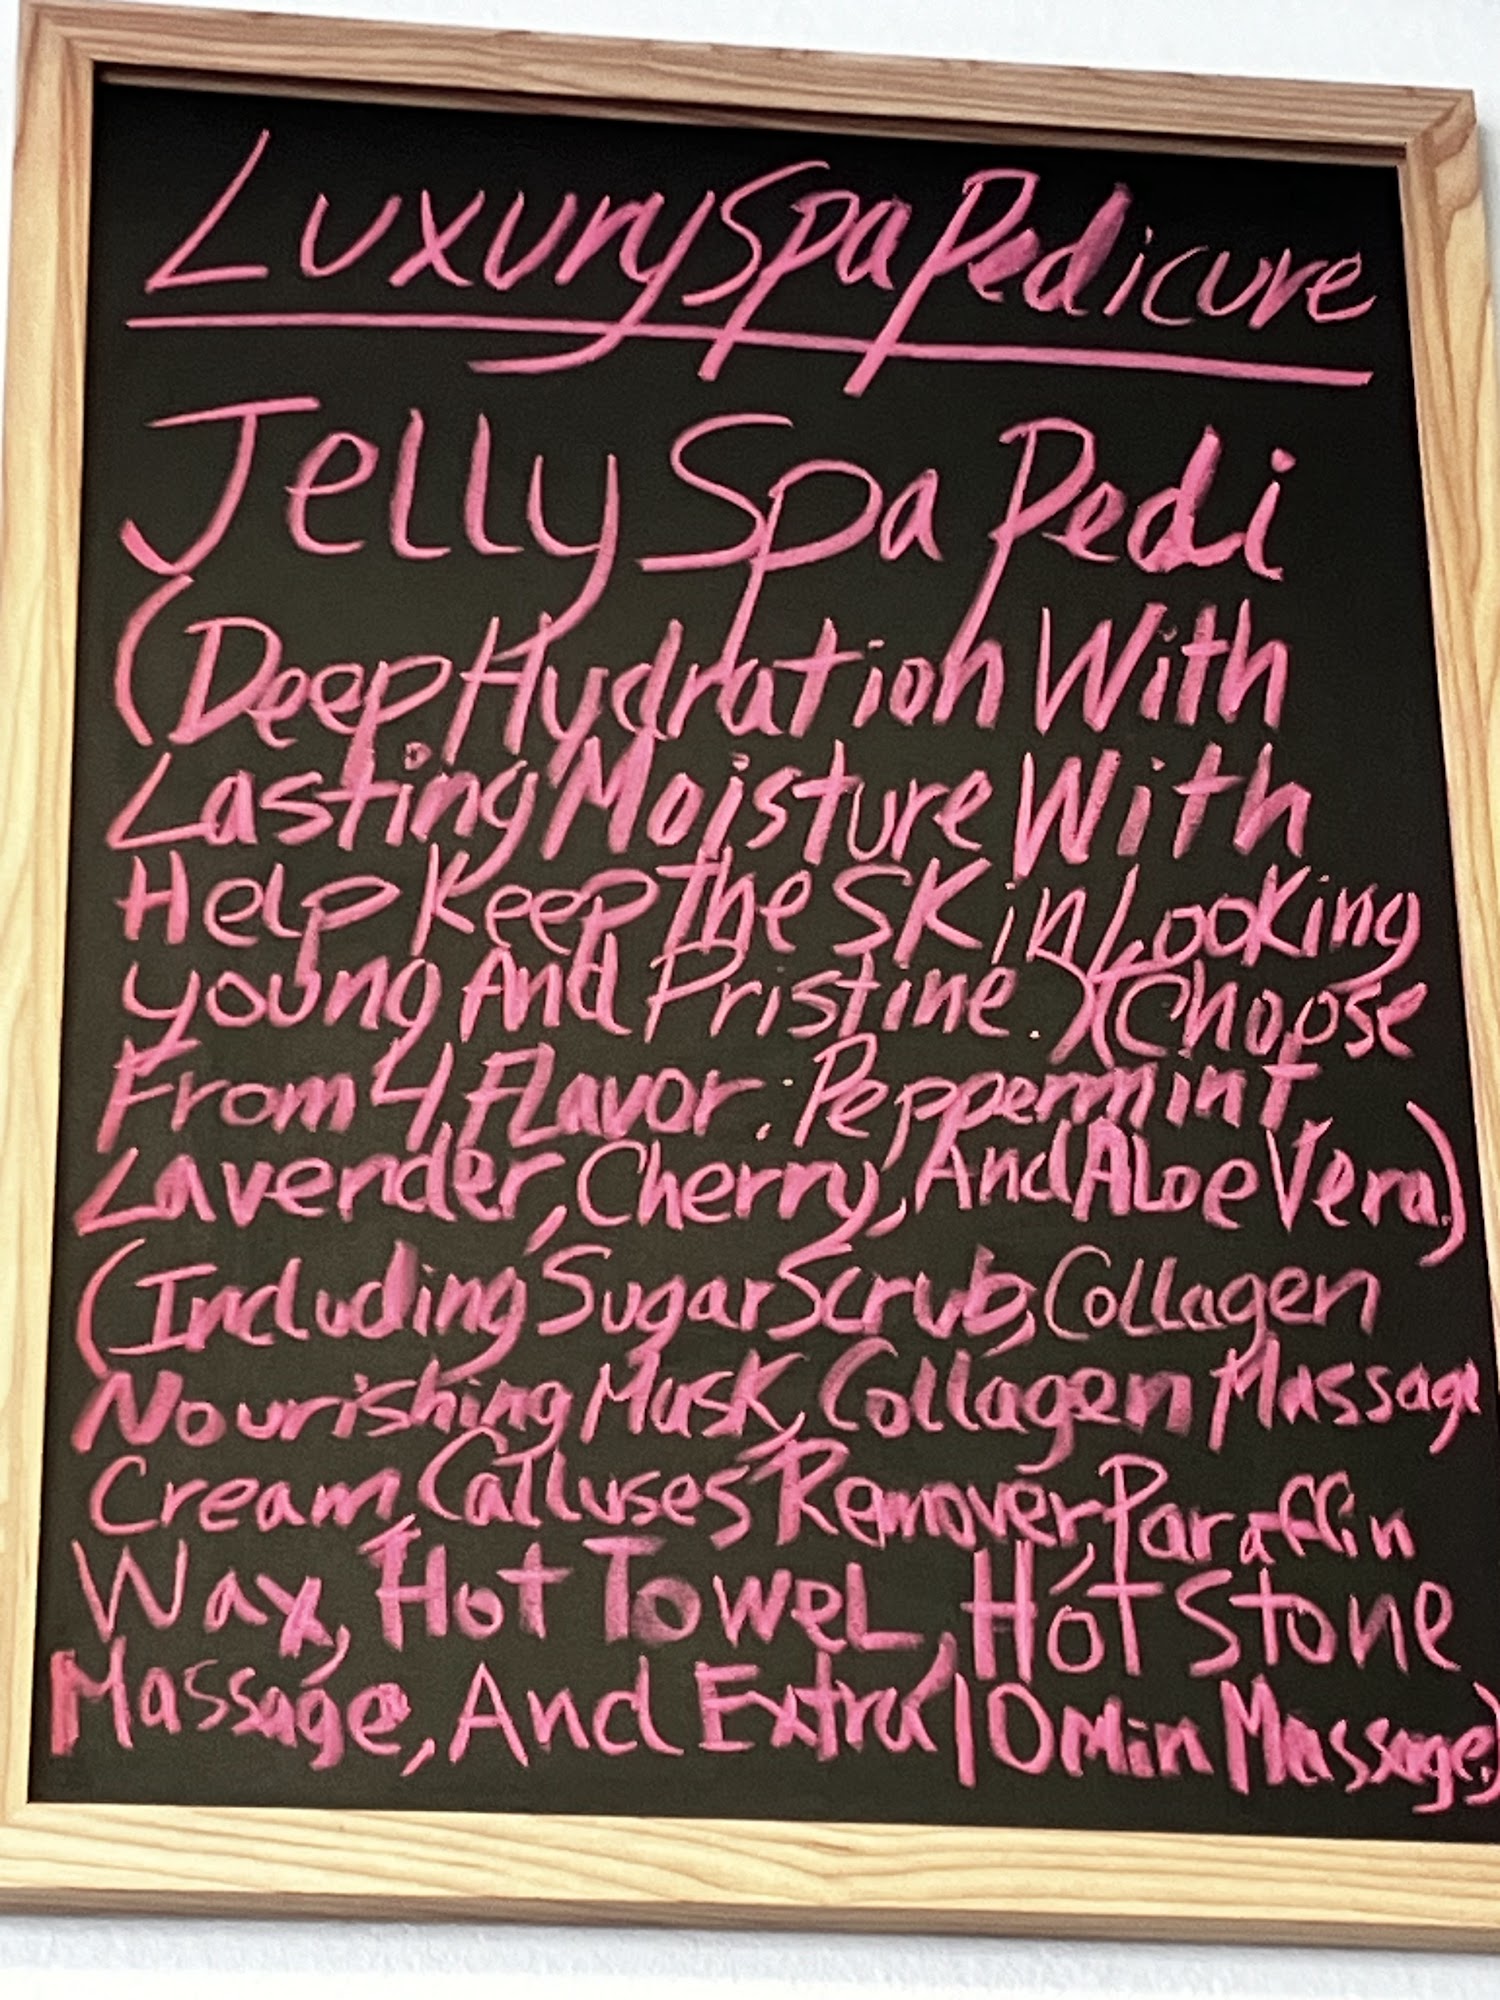 Luxury Spa Pedicure
Jelly Spa Pedi
(Deep Hydration With
Lasting Moisture With
Help Keep The Skin Looking
young And Pristine.)(Choose
From 4 Flavor: Peppermint,
Lavender, Cherry, And Aloe Vera.)
(Including Sugar Scrub, Collagen
Nourishing Mask, Collagen Massage
Cream, Calluses Remover, Paraffin
Wax, Hot Towel, Hot Stone
Massage, And Extra 10 Min Massage.)